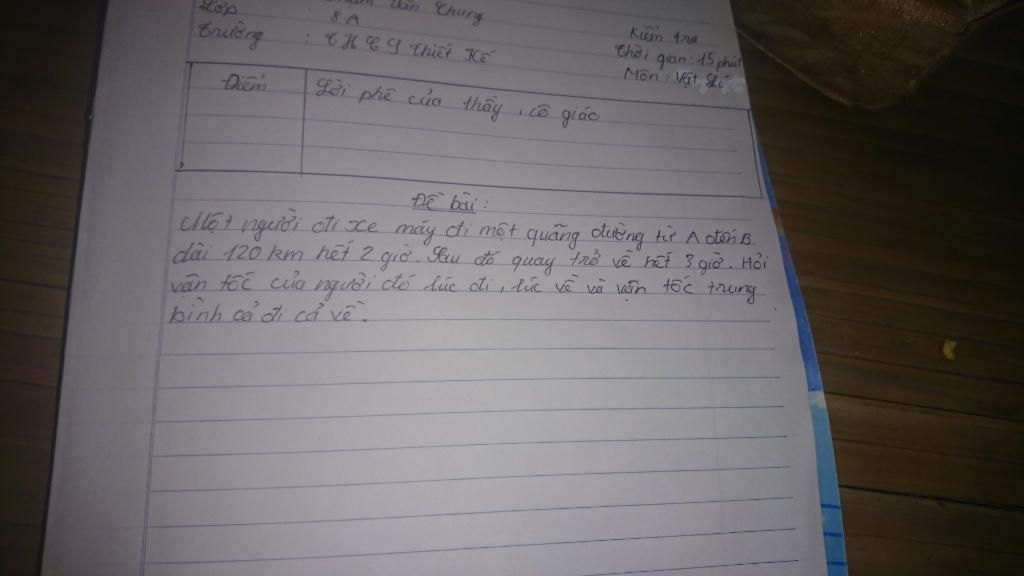 Văn Chung
Lớp : 8A
Trường : THCS Thiết Kế
Kiểm tra
Thời gian: 15 phút
Môn: Vật Lí
Điểm
Lời phê của thầy, cô giáo
Đề bài:
Một người đi xe máy đi một quãng đường từ A đến B
dài 120 km hết 2 giờ. Sau đó quay trở về hết 3 giờ. Hỏi
vận tốc của người đó lúc đi, lúc về và vận tốc trung
bình cả đi cả về.